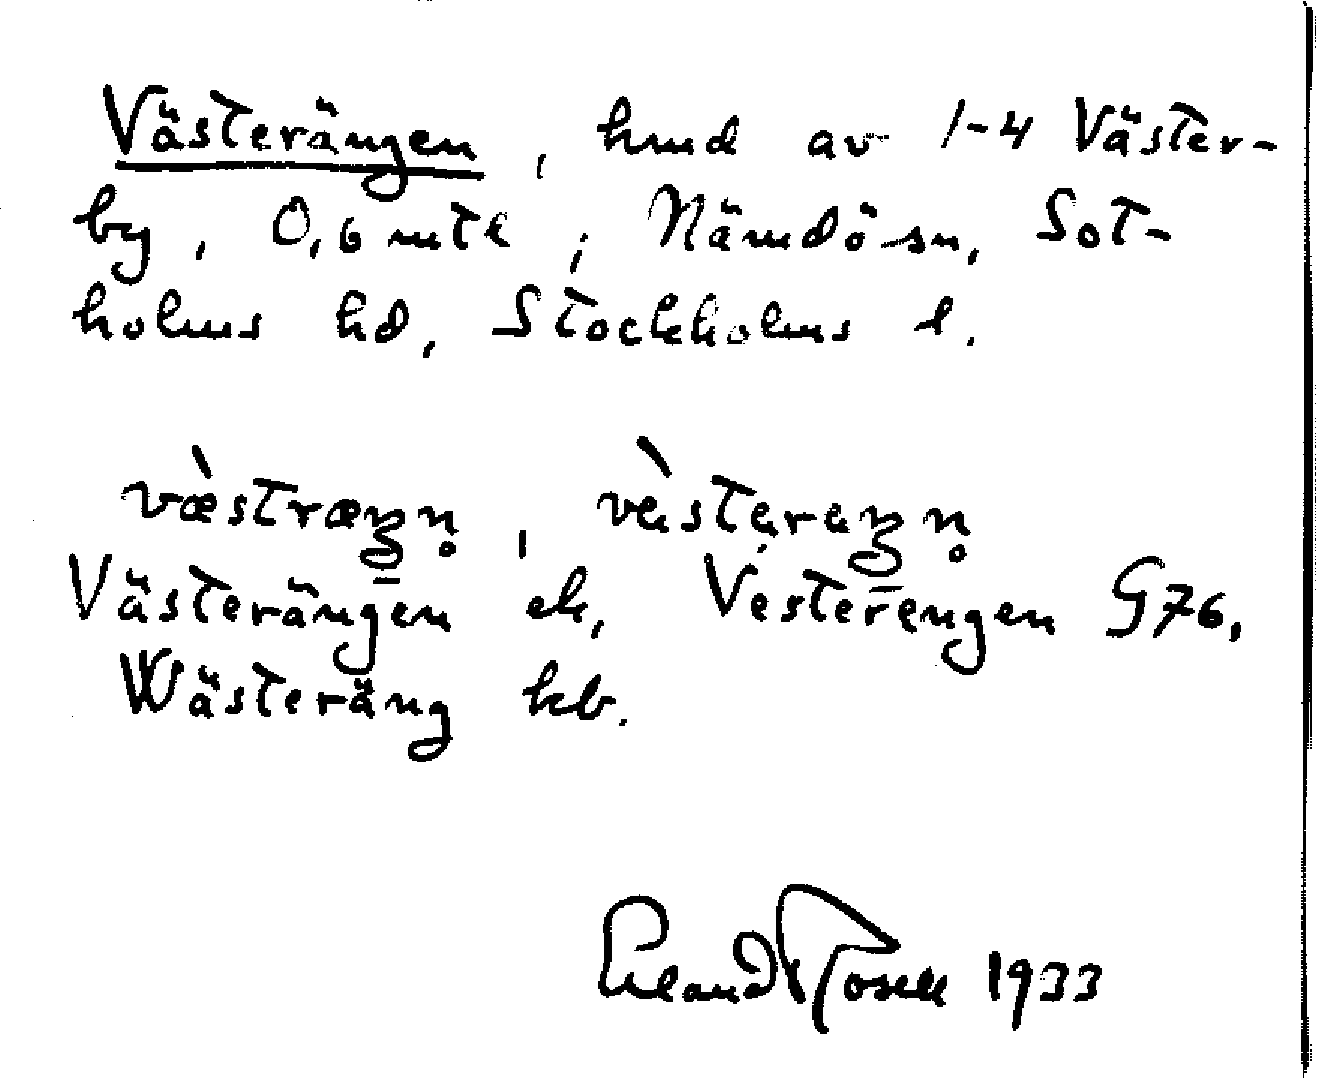 Västerängen, hmd av 1-4 Väster-
by, 0,6 mtl, Nämdö sn, Sot-
holms hd, Stockholms l.
væ̀stræŋn̥, vèsterеŋn̥
Västerängen ek, Vesterengen G76,
Wästeräng kb.
Erland Rosell 1933